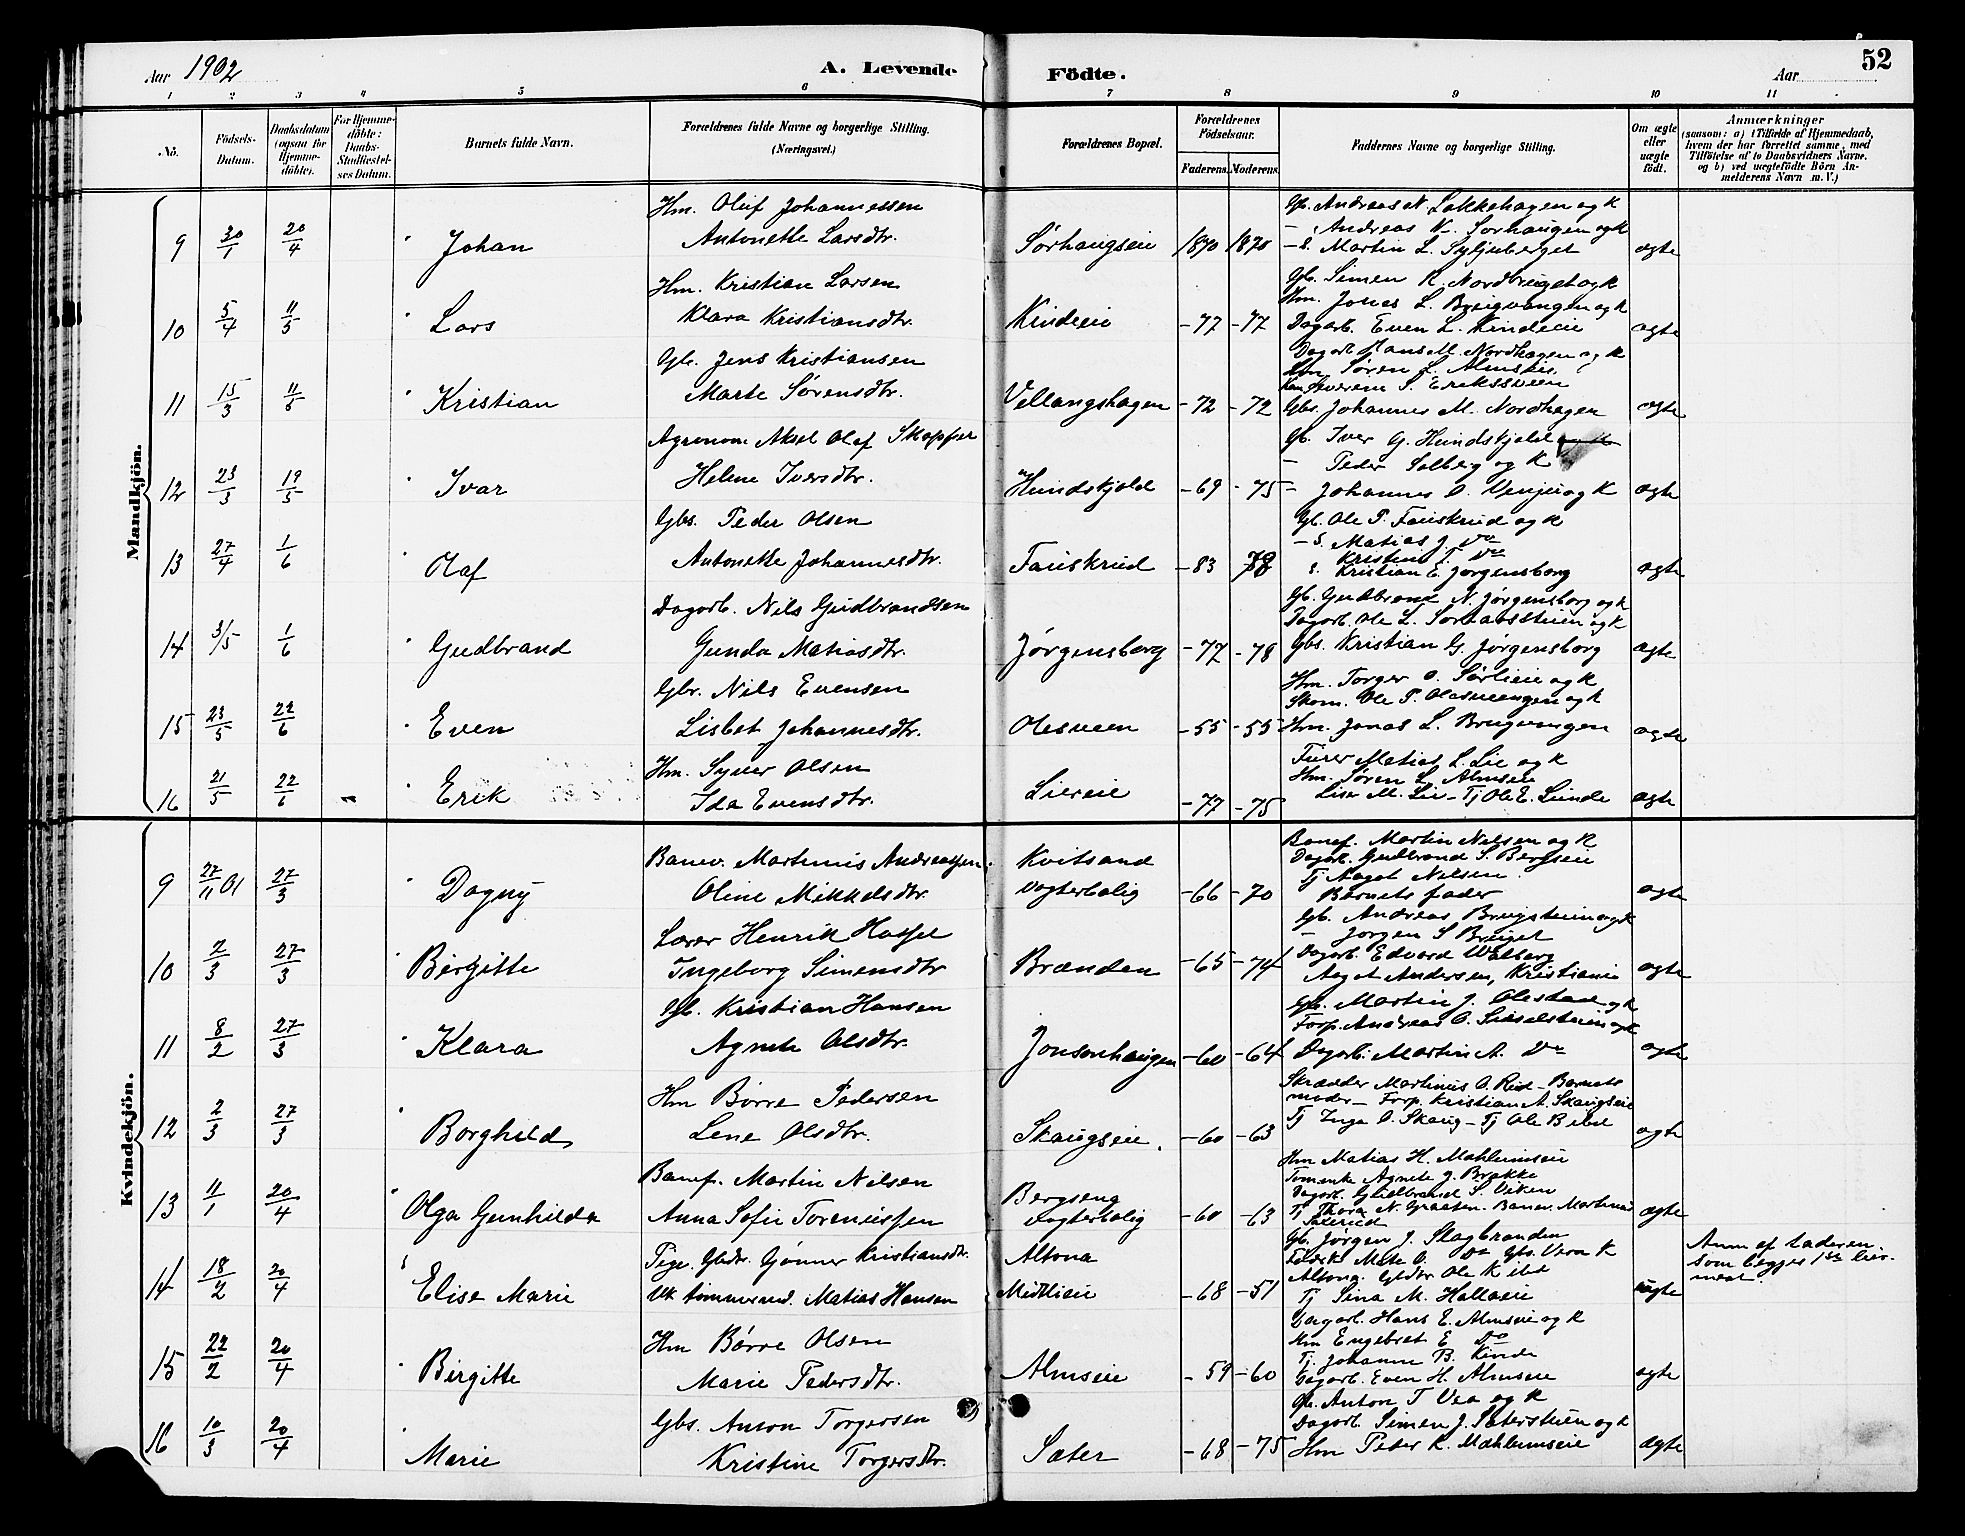 Aar 1902
A. Levende Födte.
52
Aar
1 2 3 4 5 6 7 8 9 10 11
No.
Födsels-Datum.
Daabsdatum (ogsaa for Hjemme-döbte).
For Hjemme-döbte: Daabs-Stadfæstel-ses Datum.
Barnets fulde Navn.
Forældrenes fulde Navne og borgerlige Stilling. (Næringsvei.)
Forældrenes Bopæl.
Forældrenes Födselsaar.
Faderens. Moderens.
Faddernes Navne og borgerlige Stilling.
Om ægte eller uægte födt.
Anmærkninger
(saasom: a) i Tilfælde af Hjemmedaab, hvem der har forrettet samme, med Tilföielse af to Daabsvidners Navne, og b) ved uægtefödte Börn An-melderens Navn m. V.)
Mandkjön.
9 30/1 20/4 Johan
Hm. Oluf Johannessen
Antonette Larsdtr.
Sørhaugseie 1870 1870
Gb. Andreas N. Lakkehagen og K
- Andreas N. Sørhaugen og K
- S. Martin L. Syljuberget
ægte
10 5/4 11/5 Lars
Hm. Kristian Larsen
Klara Kristiansdtr.
Kindeie -77 -77
Gb. Simen K. Nordbruget og K
Hm. Jonas L. Brugvangen og K
Dagarb. Even L. Kindeie
ægte
11 15/3 11/5 Kristian
Gbr. Jens Kristiansen
Marte Sørensdtr.
Vellangshagen -72 -72
Dagarb. Hans M. Nordhagen og K
Hm Søren L. Almseie
Severine S. Eriksveen
Gbs. Johannes M. Nordhagen
ægte
12 23/3 19/5 Ivar
Agronom Aksel Olaf Skappel
Helene Iversdtr.
Hundskjold -69 -75
Gb. Iver G. Hundskjold
- Peder Solberg og K
- Johannes O. Venju og K
ægte
13 27/4 1/6 Olaf
Gbs. Peder Olsen
Antonette Johannesdtr.
Fauskrud -83 78
Gb. Ole P. Fauskrud og K
- S. Matias J. Do
Kristine T. Do
S. Kristian E. Jørgensborg
ægte
14 3/5 1/6 Gudbrand
Dagarb. Nils Gudbrandsen
Gunda Matiasdtr.
Jørgensborg -77 -78
Gb. Gudbrand N. Jørgensborg og K
Dagarb. Ole L. og K
Gbs. Kristian G. Jørgensborg
ægte
15 23/5 22/6 Even
Gbr. Nils Evensen
Lisbet Johannesdtr.
Olesveen -55 -55
Hm. Torger O. Sørlieie og K
Skom. Ole P. Olesveengen og K
Hm. Jonas L. Brugvangen
ægte
16 21/5 22/6 Erik
Hm. Syver Olsen
Ida Evensdtr.
Liereie -77 -75
Furer Matias L. Lie og K
Hm. Søren L. Almseie
Lise M. Lie - Tj Ole E. Lunde
ægte
Kvindekjön.
9 27/11 01 27/3 Dagny
Banev. Martinius Andreassen
Oline Mikkelsdtr.
Kvitsand
Vogterbolig -66 -70
Banef. Martin Nilsen og K
Dagarb. Gudbrand S. Bergseie
Tj Aagot Nilsen
Barnets fader
ægte
10 2/3 27/3 Birgitte
Lærer Henrik Hassel
Ingeborg Simensdtr
Brænden -65 -74
Gb. Andreas Brugstuen og K
- Jørgen S Bruget
Dagarb. Edvard Walberg
Aagot Andersen, Kristiania
ægte
11 8/2 27/3 Klara
Gb. Kristian Hansen
Agnete Olsdtr.
Jonsenhaugen -60 -64
Gb. Martin J. Olestad og K
Forp. Andreas O. Sisselstuen og K
Dagarb. Martin A. Do
ægte
12 2/3 27/3 Borghild
Hm Børre Pedersen
Lene Olsdtr.
Skaugseie. -60 -63
Skrædder Martinius O. Rud - Barnets
moder - Forp. Kristian A. Skaugseie
Tj Inga O. Skaug - Tj Ole Bebel
ægte
13 11/1 20/4 Olga Gunhilda
Banef. Martin Nilsen
Anna Sofie Toreniussen
Bergseng
Vogterbolig -60 -63
Hm Matias H. Mahlumseie
Agnete J. Brække
Dagarb. Gudbrand S. Viken
Tj Thora N. Graaten. Banev. Martinius
Sæterud
ægte
14 18/2 20/4 Elise Marie
Pige. Gbdtr. Gønner Kristiansdtr.
Uk tømmermd. Matias Hansen
Altona
Midtlieie -68 -51
Gb. Jørgen J. Slagbranden
Mete O. Do Gbs. Vera K
Altona. Gbdtr Ole K ibd
Tj Sina M. Hallaeie
uægte
Anm af faderen
som begges 1ste leier-
maal.
15 22/2 20/4 Birgitte
Hm Børre Olsen
Marie Pedersdtr.
Almseie -59 -60
Dagarb. Hans E. Almseie og K
Hm Engebret E Do
Tj. Johanne B. Kinde
Dagarb. Even H. Almseie
ægte
16 10/3 20/4 Marie
Gbs. Anton Torgersen
Kristine Torgersdtr.
Sæter -68 -75
Gb. Anton T Vea og K
Dagarb. Simen J. Sæterstuen og K
Hm Peder K. Mahlumseie
ægte